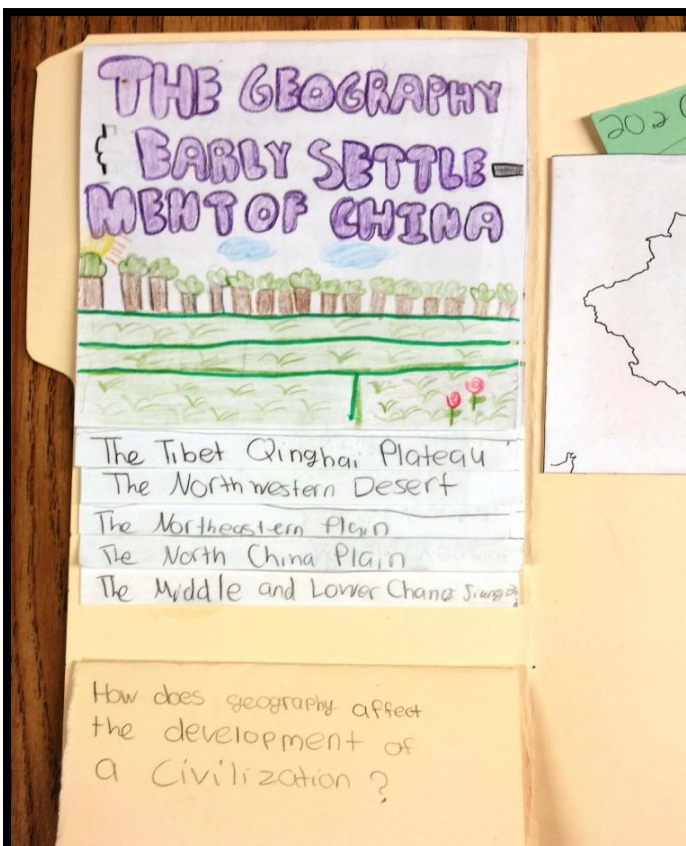 THE GEOGRAPHY
& EARLY SETTLE-
MENT OF CHINA
The Tibet Qinghai Plateau
The Northwestern Desert
The Northeastern Plain
The North China Plain
The Middle and Lower Chang Jiang
How does geography affect
the development of
a Civilization?